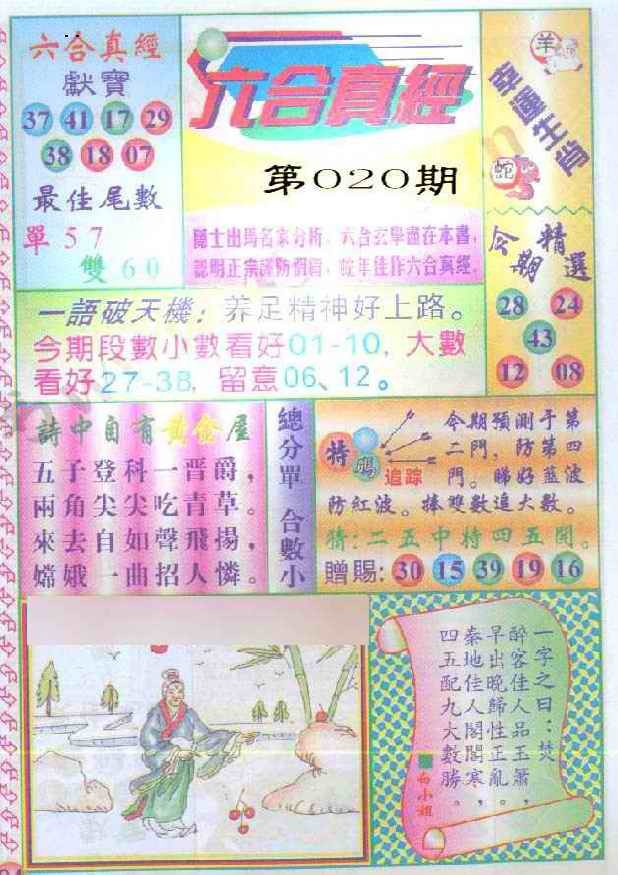 六合真經
獻寶
37 41 17 29
38 18 07
最佳尾數
單 5 7
雙 6 0
六合真經
第020期
隱士出瑪名家分析，六合玄學盡在本書，
說明正宗謹防假冒，蛇年佳作六合真經．
羊
幸運生肖
蛇
今期精選
28 24
43
12 08
一語破天機：养足精神好上路。
今期段數小數看好01-10，大數
看好27-38，留意06、12。
詩中自有黃金屋
五子登科一晋爵，
兩角尖尖吃青草。
來去自如聲飛揚，
嫦娥一曲招人憐。
總分單 合數小
特碼
追踪
令期預測于第
二門，防第四
門。睇好藍波
防紅波。捧雙數追大數。
猜：二五中特四五開。
贈賜：30 15 39 19 16
一字之曰：焚
醉客佳人品玉簫，
早出晚歸性正亂。
秦地佳人閣閣寒，
四五配九大數勝。
白小姐